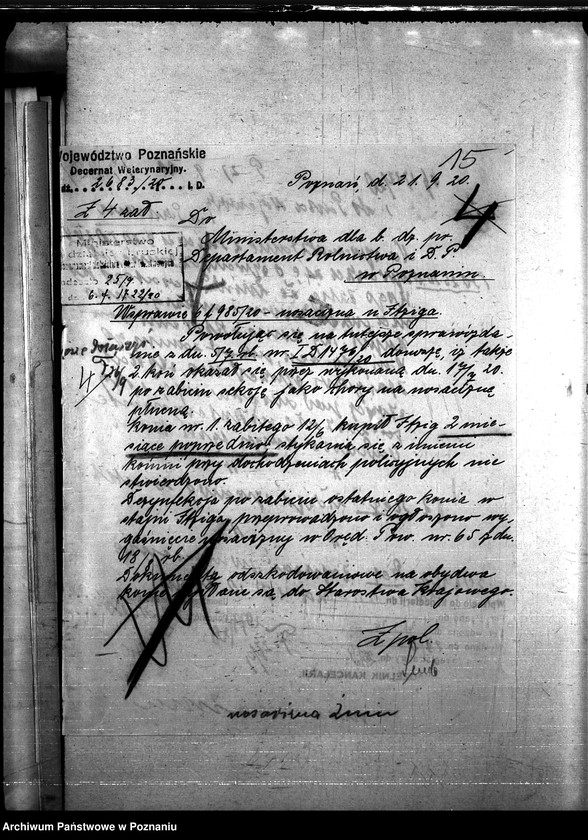 Województwo Poznańskie
Decernat Weterynaryjny.
2683/20 I. D.
Z 4 zał
15
Poznań, d. 21. 9. 20.
4
Do
Ministerstwa dla b. dz. pr.
Departament Rolnictwa i D. P.
w Poznaniu
Ministerstwo
25/9
W sprawie 6 f 985/20 - nosacizna u Strziga.
Powołując się na tutejsze sprawozda-
nie z dn. 5/7 rb. nr. I D 1476/20 donoszę, iż także
2. koń okazał się przez wykonaną dn. 17/7 20.
po zabiciu sekcję jako chory na nosaciznę
płucną.
Konia nr. 1. zabitego 12/6 kupił Strzig 2 mie-
siące poprzednio, stykania się z innemi
końmi przy dochodzeniach policyjnych nie
stwierdzono.
Dezynfekcja po zabiciu ostatniego konia w
stajni Strziga przeprowadzono i ogłoszono wy-
gaśnięcie nosacizny w Oręd. Pow. nr. 65 z dn.
rb.
Dokumenta odszkodowaniowe na obydwa
konie są do Starostwa Krajowego.
Z pol.
nosacizna Żnin
Archiwum Państwowe w Poznaniu